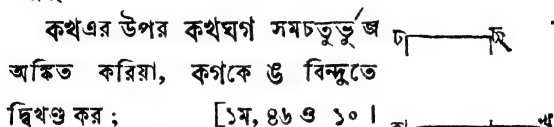 কখএর উপর কখঘগ সমচতুর্ভুজ
অঙ্কিত করিয়া, কগকে ঙ বিন্দুতে
দ্বিখণ্ড কর ; [১ম, ৪৬ ও ১০ ।